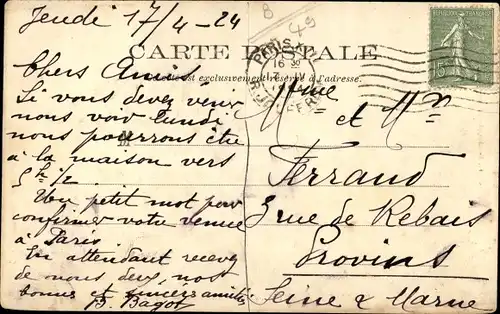 Jeudi 17/4-24
8
49
CARTE POSTALE
Ce côté est exclusivement réservé à l'adresse.
PARIS
16
RÉPUBLIQUE FRANÇAISE
15
Chers Amis
Si vous devez venir
nous voir Lundi
nous pourrons être
à la maison vers
5h 1/2
Un petit mot pour
confirmer votre venue
à Paris.
En attendant recevez
de nous deux, nos
bonnes et sincères amitiés
B. Bagot
Mme et Mr
Ferrand
3 rue de Rebais
Provins
Seine & Marne